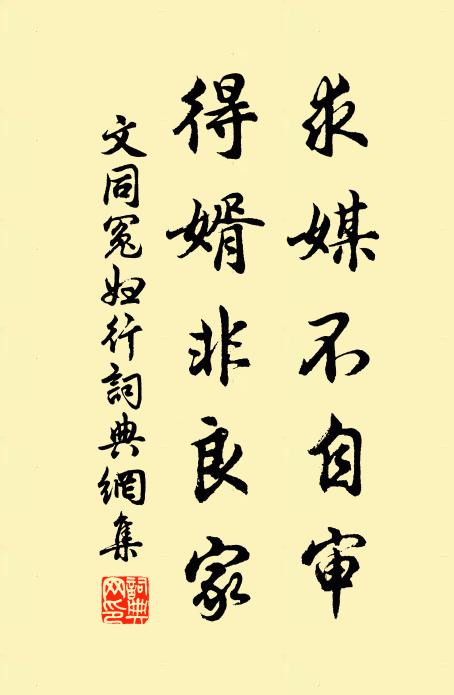 求媒不自审
得婿非良家
文同冤妇行詞典網集
詞典网印